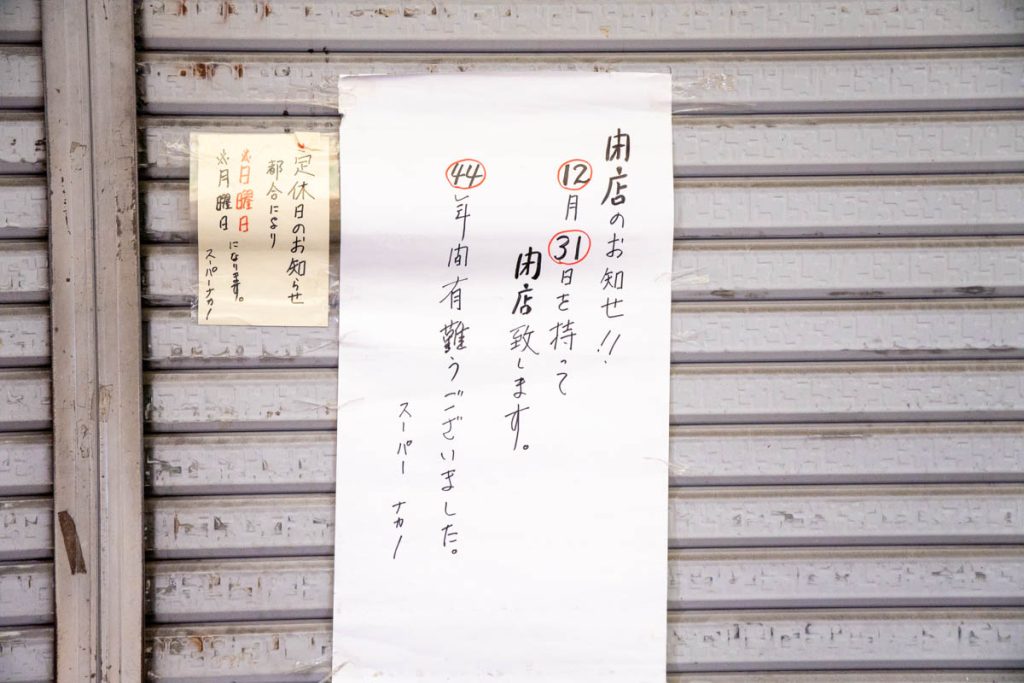 閉店のお知せ!!
12月31日を持って
閉店致します。
44年間有難うございました。
スーパー ナカノ
定休日のお知らせ
都合により
日曜日
月曜日
になります。
スーパーナカノ